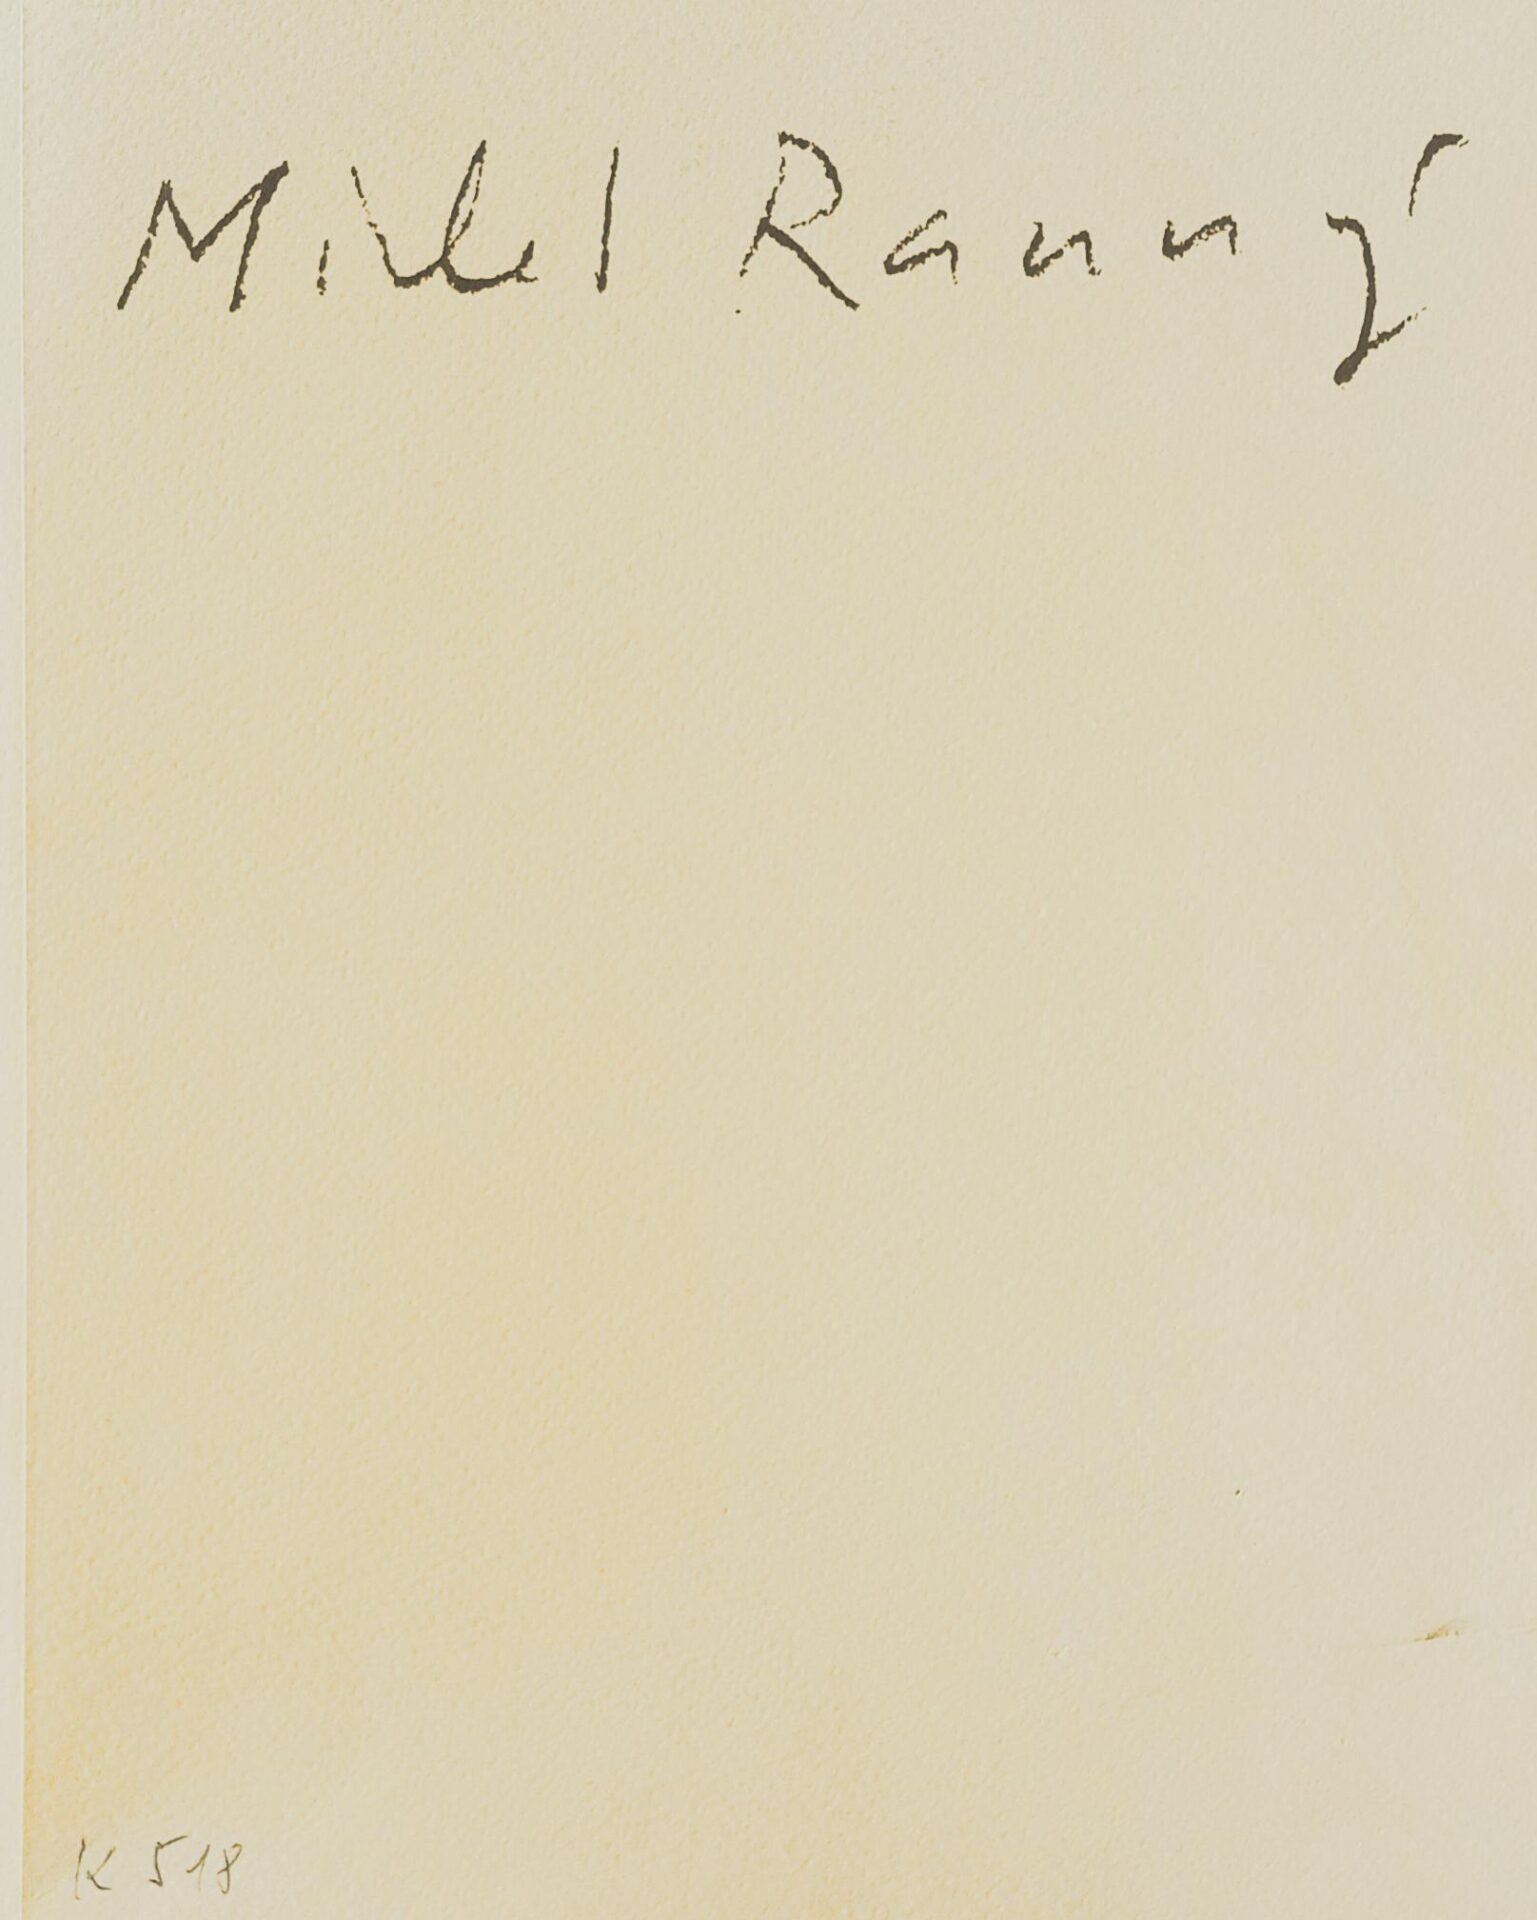 Michel Ranný
K 518